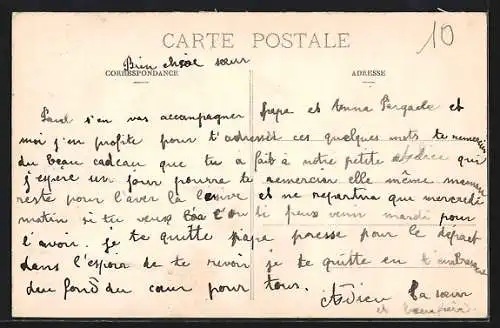 CARTE POSTALE
10
Bien chère sœur
CORRESPONDANCE
ADRESSE
Paul s'en vas accompagner papa et Anna Pergade et
moi j'en profite pour t'adresser ces quelques mots te remercier
du beau cadeau que tu a fait à notre petite qui
j'espère un jour pourra te remercier elle même maman
reste pour l'aver la lesive et ne repartira que mercredi
matin si tu veux l'on di peux venir mardi pour
l'avoir. je te quitte papa presse pour le départ
dans l'espoir de te revoir je te quitte en t'embrassant
du fond du cœur pour tous. Adieu ta sœur
et